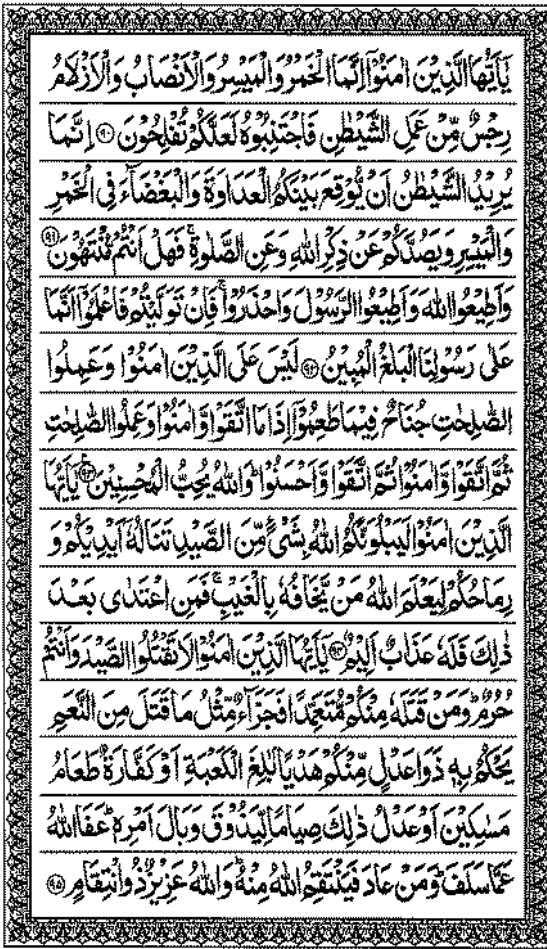 يٰۤاَيُّهَا الَّذِيْنَ اٰمَنُوْۤا اِنَّمَا الْخَمْرُ وَالْمَيْسِرُ وَالْاَنْصَابُ وَالْاَزْلَامُ
رِجْسٌ مِّنْ عَمَلِ الشَّيْطٰنِ فَاجْتَنِبُوْهُ لَعَلَّكُمْ تُفْلِحُوْنَ ۝۹۰ اِنَّمَا
يُرِيْدُ الشَّيْطٰنُ اَنْ يُّوْقِعَ بَيْنَكُمُ الْعَدَاوَةَ وَالْبَغْضَآءَ فِى الْخَمْرِ
وَالْمَيْسِرِ وَيَصُدَّكُمْ عَنْ ذِكْرِ اللّٰهِ وَعَنِ الصَّلٰوةِ ۚ فَهَلْ اَنْتُمْ مُّنْتَهُوْنَ ۝۹۱
وَاَطِيْعُوا اللّٰهَ وَاَطِيْعُوا الرَّسُوْلَ وَاحْذَرُوْا ۚ فَاِنْ تَوَلَّيْتُمْ فَاعْلَمُوْۤا اَنَّمَا
عَلٰى رَسُوْلِنَا الْبَلٰغُ الْمُبِيْنُ ۝۹۲ لَيْسَ عَلَى الَّذِيْنَ اٰمَنُوْا وَعَمِلُوا
الصّٰلِحٰتِ جُنَاحٌ فِيْمَا طَعِمُوْۤا اِذَا مَا اتَّقَوْا وَّاٰمَنُوْا وَعَمِلُوا الصّٰلِحٰتِ
ثُمَّ اتَّقَوْا وَّاٰمَنُوْا ثُمَّ اتَّقَوْا وَّاَحْسَنُوْا ؕ وَاللّٰهُ يُحِبُّ الْمُحْسِنِيْنَ ۝۹۳ يٰۤاَيُّهَا
الَّذِيْنَ اٰمَنُوْا لَيَبْلُوَنَّكُمُ اللّٰهُ بِشَىْءٍ مِّنَ الصَّيْدِ تَنَالُهٗۤ اَيْدِيْكُمْ وَ
رِمَاحُكُمْ لِيَعْلَمَ اللّٰهُ مَنْ يَّخَافُهٗ بِالْغَيْبِ ۚ فَمَنِ اعْتَدٰى بَعْدَ
ذٰلِكَ فَلَهٗ عَذَابٌ اَلِيْمٌ ۝۹۴ يٰۤاَيُّهَا الَّذِيْنَ اٰمَنُوْا لَا تَقْتُلُوا الصَّيْدَ وَاَنْتُمْ
حُرُمٌ ؕ وَمَنْ قَتَلَهٗ مِنْكُمْ مُّتَعَمِّدًا فَجَزَآءٌ مِّثْلُ مَا قَتَلَ مِنَ النَّعَمِ
يَحْكُمُ بِهٖ ذَوَا عَدْلٍ مِّنْكُمْ هَدْيًۢا بٰلِغَ الْكَعْبَةِ اَوْ كَفَّارَةٌ طَعَامُ
مَسٰكِيْنَ اَوْ عَدْلُ ذٰلِكَ صِيَامًا لِّيَذُوْقَ وَبَالَ اَمْرِهٖ ؕ عَفَا اللّٰهُ
عَمَّا سَلَفَ ؕ وَمَنْ عَادَ فَيَنْتَقِمُ اللّٰهُ مِنْهُ ؕ وَاللّٰهُ عَزِيْزٌ ذُو انْتِقَامٍ ۝۹۵